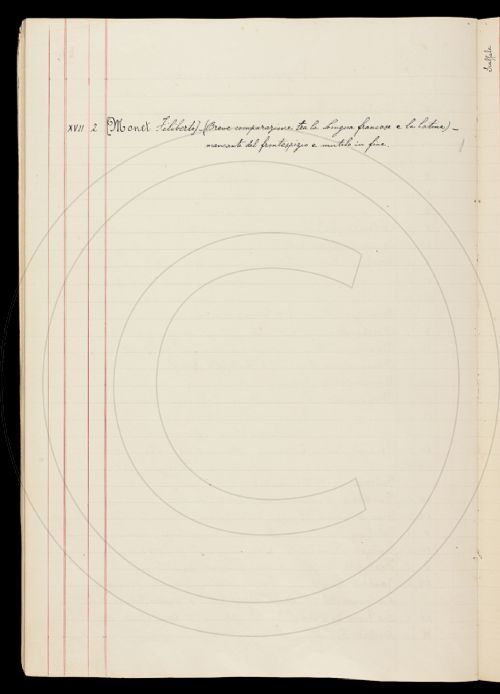 XVII 2 [Monet Filiberto] - (Breve comparazione tra la lingua francese e la latina) -
mancante del frontespizio e mutilo in fine.
Scaffale